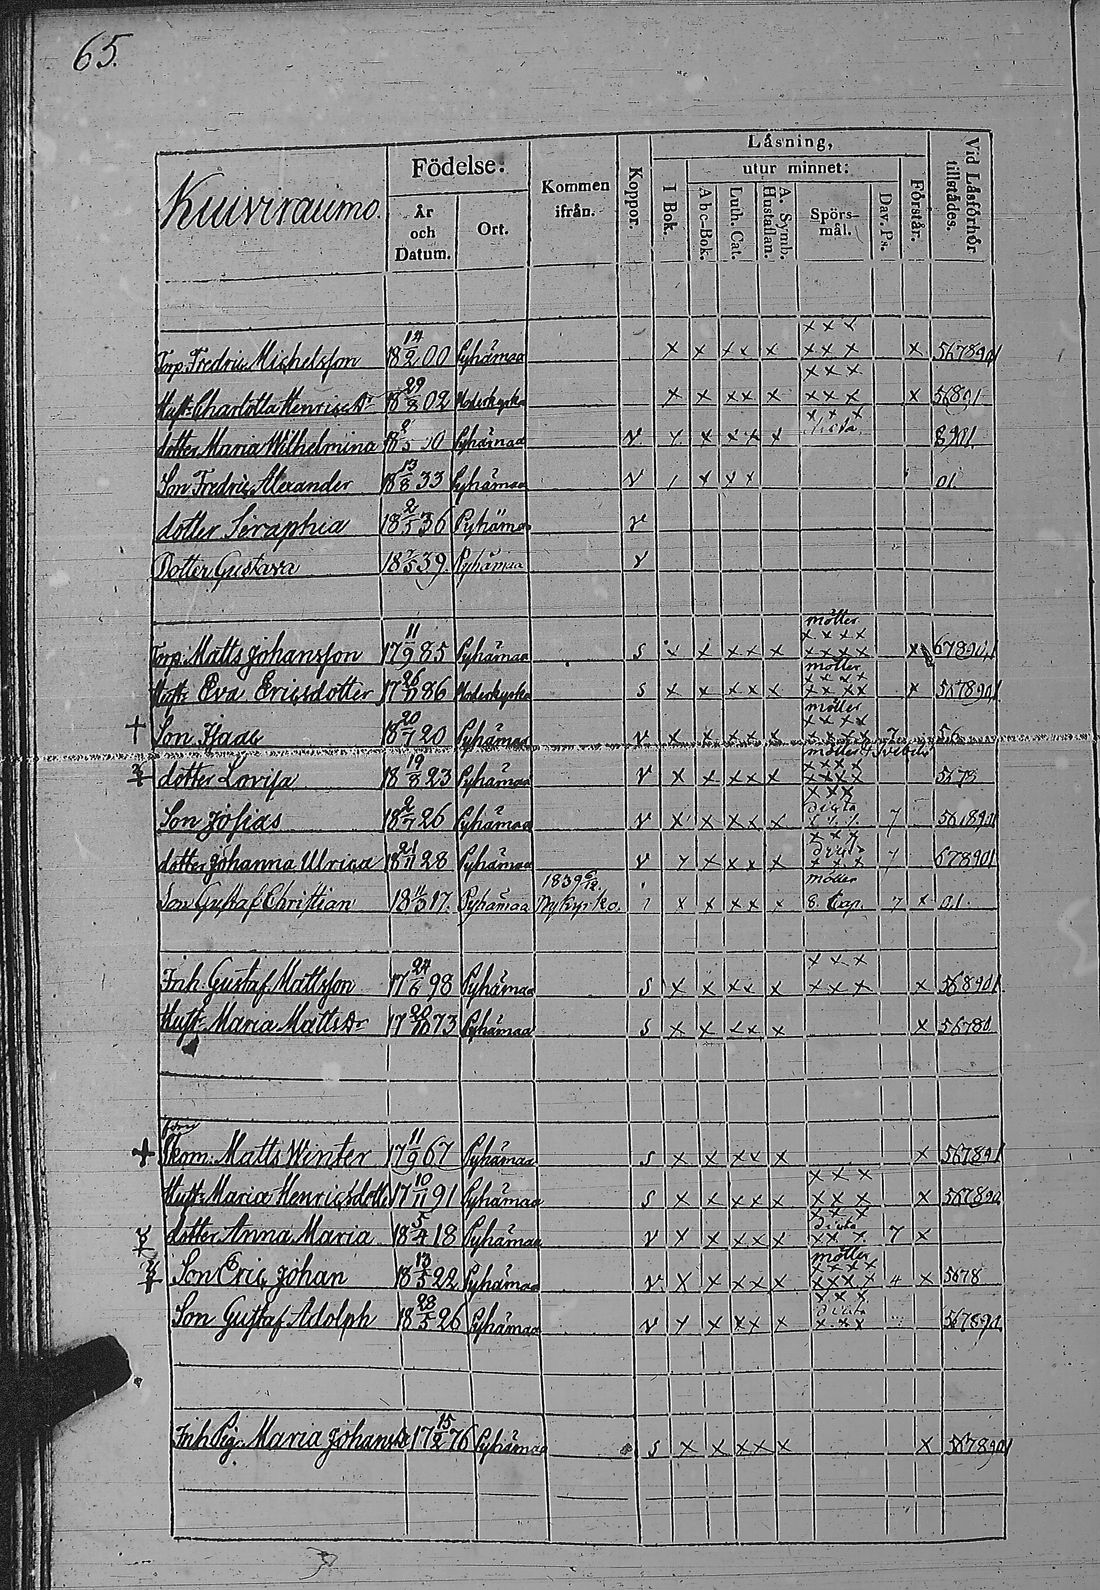 65.
Kuiviraumo.
Födelse:
År och Datum.
Ort.
Kommen ifrån.
Koppor.
Låsning,
I Bok.
utur minnet:
Abc-Bok.
Luth. Cat.
A. Symb. Hustaflan.
Spörs-mål.
Dav. Ps.
Förstår.
Vid Låsförhör tillstådes.
x x x
Torp. Fredric Michelsson 18 14/2 00 Pyhämaa x x x x x x x x x 5678901
x x x
Hust: Charlotta Henricsdr 18 29/8 02 Moderkyrka x x x x x x x x x 56891
x x x
dotter Maria Wilhelmina Pyhämaa v x x x x dicta 8901
Son Fredric Alexander 18 13/8 33 Pyhämaa v x x x 01.
dotter Seraphia 18 2/5 36 Pyhämaa v
Dotter Gustava 18 7/5 39 Pyhämaa v
möller
x x x x
Torp: Matts Johansson 17 11/9 85 Pyhämaa s x x x x x x x x x x
möller
x x x x
Hust: Eva Ericsdotter 17 26/11 86 Moderkyrka s x x x x x x x x x x 5678901
möller
x x x x
+ Son Isaac 18 20/7 20 Pyhämaa v x x x x x x x x x 7 56
möller
x x x x
dotter Lovisa 18 19/8 23 Pyhämaa v x x x x x x x x x 5678
x x x
dicta
Son Josias 18 2/7 26 Pyhämaa v x x x x x 7
x x x
dicta
dotter Johanna Ulrica 18 21/11 28 Pyhämaa v x x x x x x x x 7 678901
1839 möller
Son Gustaf Christian 18 11/3 17. Pyhämaa Nykyrko. x x x x x 8. Cap. 7 x 01.
x x x
Inh. Gustaf Mattsson 17 24/6 98 Pyhämaa s x x x x x x x x x 568901
Hust: Maria Mattsdr 17 20/10 73 Pyhämaa s x x x x x x 56780
+ Skom: Matts Winter 17 11/9 67 Pyhämaa s x x x x x x 567891
x x x
Hust: Maria Henricsdotter 17 10/11 91 Pyhämaa s x x x x x x x x x 567890
x x x
dicta
dotter Anna Maria 18 5/4 18 Pyhämaa v x x x x x x x x 7 x
möller
x x x x
Son Eric Johan 18 13/5 22 Pyhämaa v x x x x x x x x x 4 x 5678
x x x
dicta
Son Gustaf Adolph 18 28/5 26 Pyhämaa v x x x x x x x x 567890
Inh. Pig. Maria Johansdr 17 15/2 76 Pyhämaa s x x x x x x 5678901